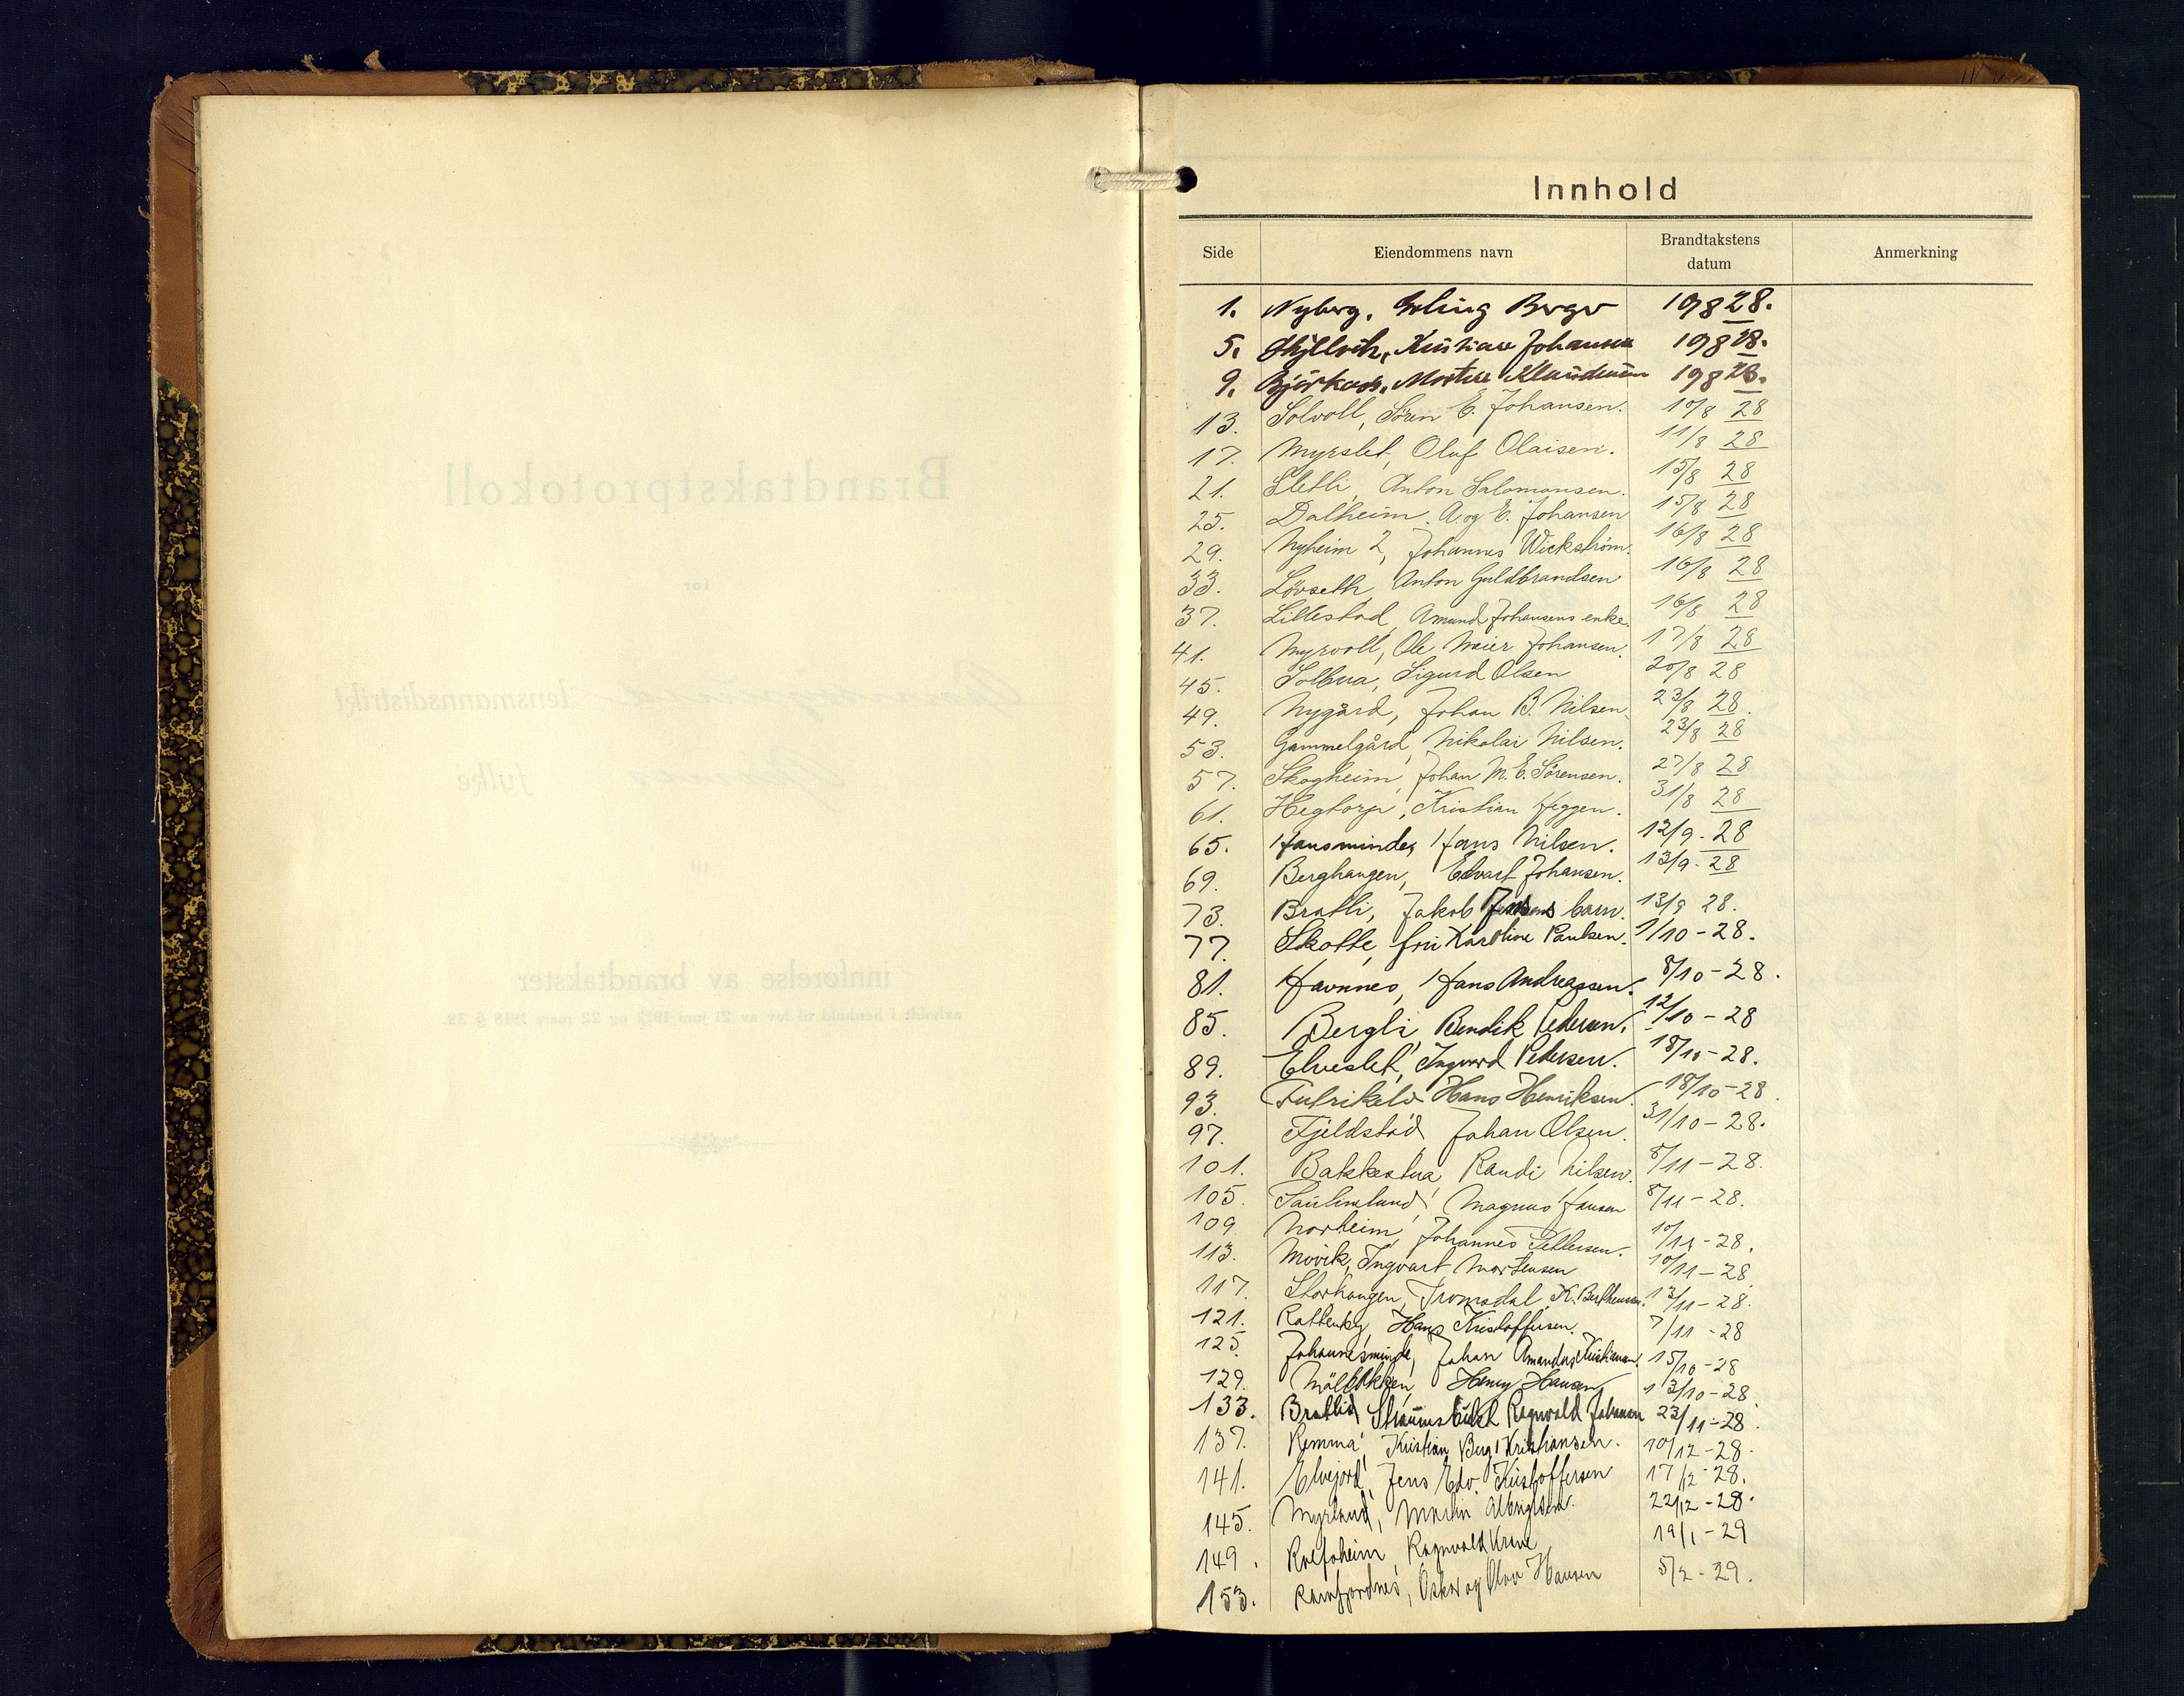 Innhold
Side Eiendommens navn Brandtakstens datum Anmerkning
1. Nyberg, Erling Berger 19 8 28.
5. Kristian Johansen 19 8 28.
9. 19 8 28.
13. Solvoll, Sören E. Johansen. 10/8 28
17. Myrslet, Oluf Olaisen. 11/8 28
21. Sletli, Anton Salomonsen. 15/8 28
25. Dalheim. A. og E. Johansen 15/8 28
29. Nyheim 2, Johannes Wickström. 16/8 28
33. Lövseth, Anton Guldbrandsen 16/8 28
37. Lillestad, Amund Johansens enke. 16/8 28
41. Myrvoll, Ole Meier Johansen. 17/8 28
45. Solbua, Sigurd Olsen 20/8 28
49. Nygård, Johan B. Nilsen. 23/8 28.
53. Gammelgård, Nikolai Nilsen. 23/8 28
57. Skogheim, Johan M. E. Sörensen. 27/8 28
61. Hegtorp, Kristian Heggen. 31/8 28
65. Hansminde, Hans Nilsen. 12/9 - 28
69. Berghaugen, Edvart Johansen. 13/9 - 28
73. Bratli, Jakob Jensens barn. 13/9 28.
77. Skatte, fru Karoline Paulsen. 1/10 - 28.
81. Havnnes, Hans Andreassen. 8/10 - 28.
85. Bergli, Bendik Pedersen. 12/10 - 28
89. Elveslet, Ingvard Pedersen. 18/10 - 28.
93. Hans Henriksen. 18/10 - 28.
97. Fjeldstad Johan Olsen. 31/10 - 28.
101. Bakkestua, Randi Nilsen. 8/11 - 28.
105. Magnus Hansen 8/11 - 28.
109. Norheim, Johannes Pettersen. 10/11 - 28.
113. Movik, Ingvart Mortensen 10/11 - 28.
117. Storhaugen, Tromsdal, K. Bertheusen. 13/11 - 28.
121. Hans Kristoffersen. 7/11 - 28
125. Johannesminde, Johan Amandus Kristiansen. 15/10 - 28
129. Henry Hansen 13/10 - 28
133. Bratlid Ragnvald Johansen 23/11 - 28.
137. Remma, Kristian Berg Kristiansen. 10/12 - 28.
141. Elvejord, Jens Edv. Kristoffersen 17/12 28.
145. Myrland, Martin Albrigtsen. 22/12 - 28.
149. Ragnvald Krane 19/1 - 29
153. Ramfjordnes, Oskar og Olav Hansen 5/2 - 29.